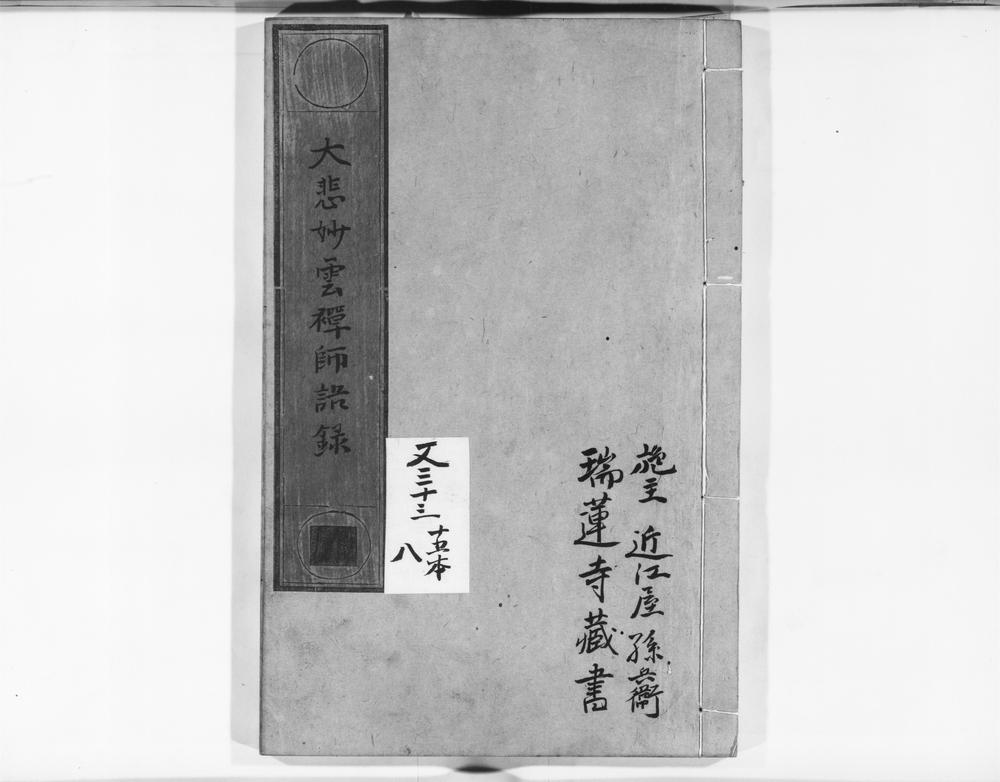 施主 近江屋孫兵衛
瑞蓮寺藏書
大悲妙雲禪師語録
又三十三
十五本
八